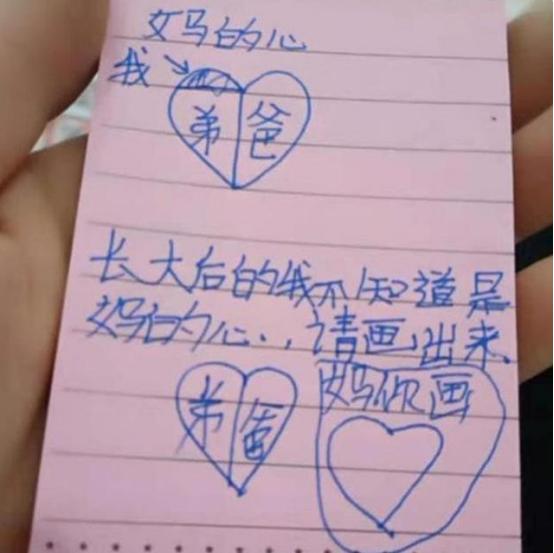 妈的心
我
弟 爸
长大后的我不知道是
妈的心..请画出来
弟 爸
妈你画